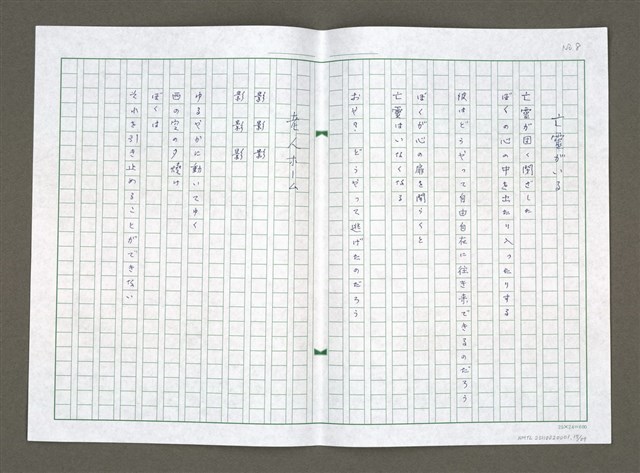 No. 8
亡霊がいる
亡霊が固く閉ざした
ぼくの心の中を出たり入ったりする
彼はどうやって自由自在に往き来できるのだろう
ぼくが心の扉を開らくと
亡霊はいなくなる
おや? どうやって逃げたのだろう
老人ホーム
影 影 影
影 影 影
ゆるやかに動いてゆく
西の空の夕焼け
ぼくは
それを引き止めることができない